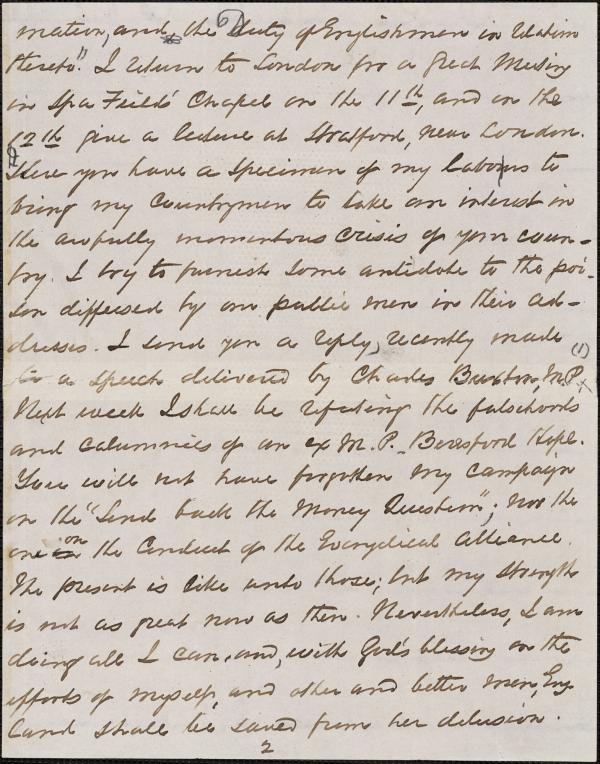 mation, and, the Duty of Englishmen in relation
thereto". I return to London for a Great Meeting
in Spa Fields' Chapel on the 11th, and on the
12th give a lecture at Stratford, near London.
Here you have a specimen of my labours to
bring my Countrymen to take an interest in
the awfully momentous crisis of your coun-
try. I try to furnish some antidote to the poi-
son diffused by our public men in their ad-
dresses. I send you a reply, recently made (1)
to a speech delivered by Charles Buxton M.P. x
Next week I shall be refuting the falsehoods
and calumnies of an ex M.P. – Beresford Hope.
You will not have forgotten my campaign
on the "Send back the Money Question"; nor the
one on the Conduct of the Evangelical Alliance.
The present is like unto those; but my strength
is not as great now as then. Nevertheless, I am
doing all I can, and, with God's blessing on the
efforts of myself, and other and better men, Eng-
land shall be saved from her delusion.
2